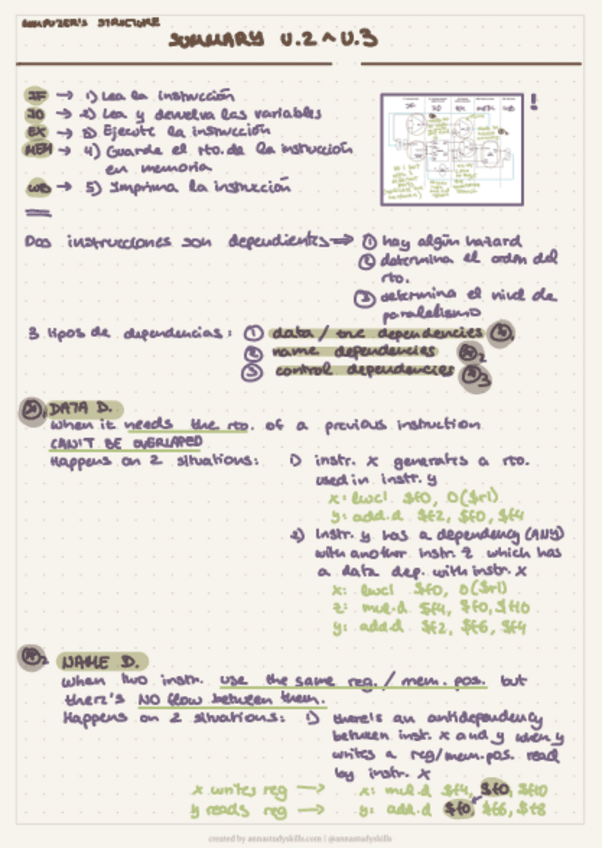 COMPUTER'S STRUCTURE
SUMMARY U.2 ~ U.3
IF → 1) Lea la instrucción
ID → 2) Lea y devuelva las variables
EX → 3) Ejecute la instrucción
MEM → 4) Guarde el rto. de la instrucción
en memoria
WB → 5) Imprima la instrucción
!
Dos instrucciones son dependientes ⇒ ① hay algún hazard
② determina el orden del
rto.
③ determina el nivel de
paralelismo
3 tipos de dependencias: ① data / true dependencies
② name dependencies
③ control dependencies
DATA D.
When it needs the rto. of a previous instruction
CAN'T BE OVERLAPED
Happens on 2 situations: 1) instr. x generates a rto.
used in instr. y
x: lwc1 $f0, 0($r1)
y: add.d $f2, $f0, $f4
2) Instr. y has a dependency (ANY)
with another instr. z which has
a data dep. with instr. x
x: lwc1 $f0, 0($r1)
z: mul.d $f4, $f0, $f10
y: add.d $f2, $f6, $f4
NAME D.
When two instr. use the same reg. / mem. pos. but
there's NO flow between them.
Happens on 2 situations: 1) there's an antidependency
between inst. x and y when y
writes a reg/mem.pos. read
by instr. x
x writes reg → x: mul.d $f4, $f0, $f10
y reads reg → y: add.d $f0, $f6, $f8
created by annastudyskills.com | @annastudyskills